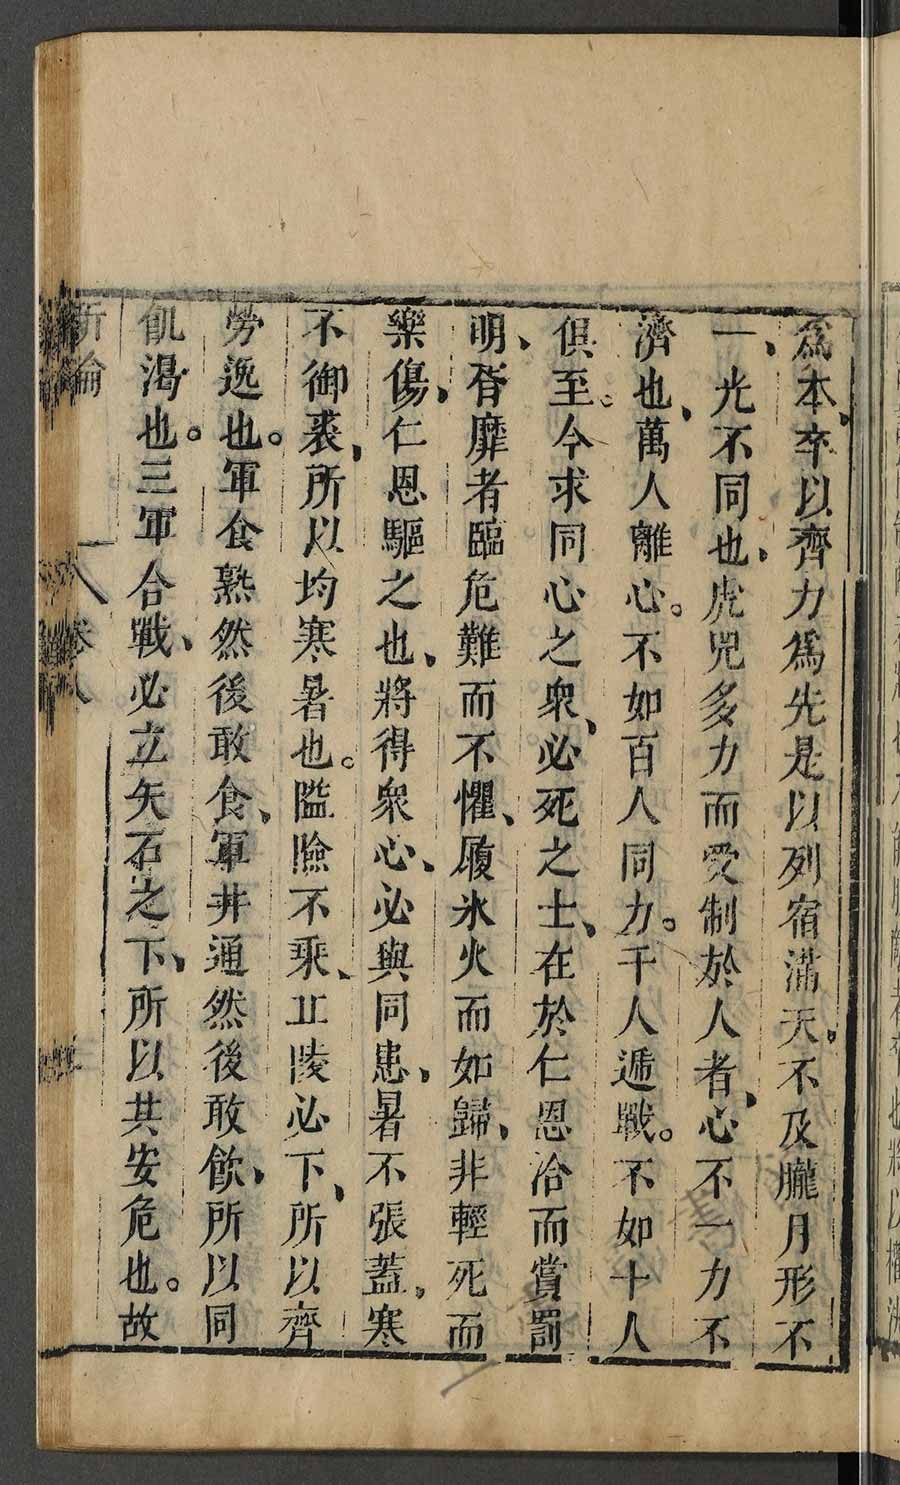 爲本、卒以齊力爲先是以列宿滿天。不及朧月形不
一、光不同也、虎兕多力而受制於人者、心不一力不
濟也、萬人離心。不如百人同力。千人遞戰。不如十人
俱至。今求同心之衆、必死之士、在於仁恩洽而賞罰
明、胥靡者臨危難而不懼、履氷火而如歸、非輕死而
樂傷、仁恩驅之也、將得衆心、必與同患、暑不張蓋、寒
不御裘、所以均寒暑也。隘險不乘、丘陵必下、所以齊
勞逸也。軍食熟然後敢食、軍井通然後敢飲、所以同
飢渴也。三軍合戰、必立矢石之下、所以共安危也。故
新論
卷八